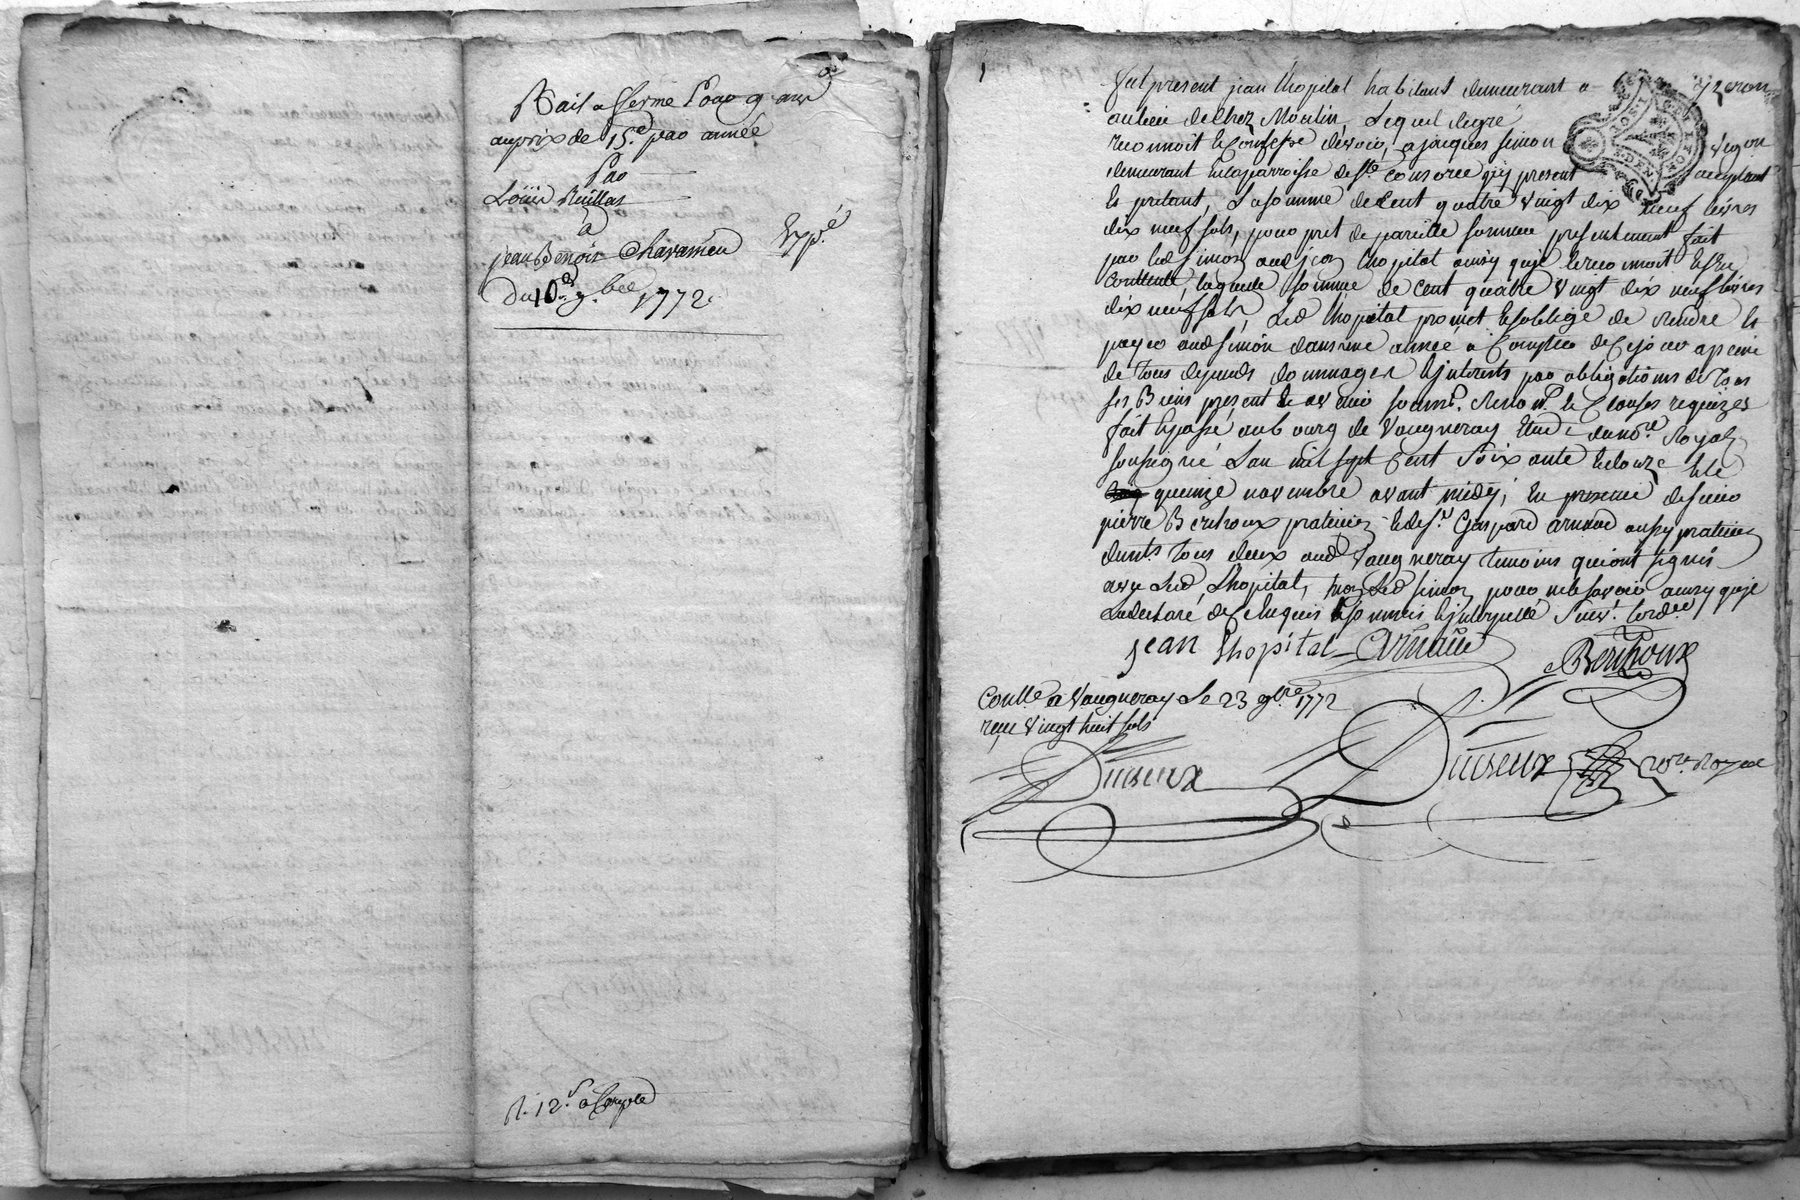 Bail a fferme Pour 9 ans
au prix de 15.# par année
Par
Loüis Ruillas
à
jean Benoist Chavassieu
Expé.
Du 10.e 9.bre 1772.
R. 12.s à Compte
1
Fut present jean Lhopital habitant demeurant a yzeron
au lieu de Chez Moulin, Lequel de gré
reconnoit & Confesse devoir, a jacques simon vigon
demeurant En la parroisse de s.te Consorce icy present acceptant
la somme de Cent quatre vingt dix neuf livres
dix neuf sols, pour pret de pareille somme presentement fait
par led. simon aud. jean Lhopital ainsy qu'il le reconnoit Estre
Contente, laquelle somme de cent quatre vingt dix neuf livres
dix neuf sols, Led. Lhopital promet & s'obblige de Rendre &
payer aud. simon dans une année a Compter de Ce jour a peine
de tous depends dommages & interests par obligations de tous
ses Biens present & avenir soums.s Renon.s & Clauses requizes
fait & passé au bourg de Vaugneray Etude du no.re Royal
soussigné L'an mil sept Cent Soixante & douze & le
quinze novembre avant midy, En presence de sieur
pierre Berthoux praticien & de s.r Gaspard Arnaud aussy praticien
dem.ts tous deux aud. Vaugneray temoins qui ont signés
avec Led. Lhopital, non Led. simon pour ne le savoir ainsy qu'il
a declaré de Ce Enquis & sommés & interpellé
jean Lhopital Arnaud
Berthoux
Con.lle a Vaugneray Le 23 9.bre 1772
reçu vingt huit sols